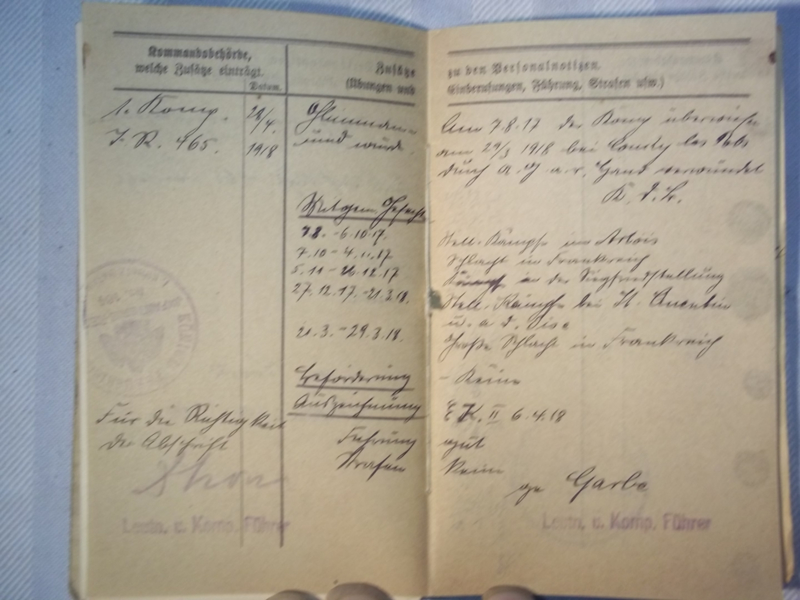 Kommandobehörde,
welche Zusätze einträgt.
Datum.
1. Komp.
28/4.
J. R. 465.
1918
Für die Richtigkeit
der Abschrift
Leutn. u. Komp. Führer
Zusätze
(Übungen und
und wurde
Gefecht
7.10 - 4.11.17
5.11 - 26.12.17
27.12.17. - 21.3.18.
21.3. - 29.3.18.
Beförderung
Auszeichnung
Führung
Strafen
zu den Personalnotizen.
Einberufungen, Führung, Strafen usw.)
Am 7.8.17 der Komp überwiesen
am 29/3 1918 bei
durch A. G. a. r. Hand verwundet
Stell. Kämpfe im Artois
Schlacht in Frankreich
Kämpfe in der Siegfriedstellung
Stell. Kämpfe bei St. Quentin
u. a. d. Oise
Große Schlacht in Frankreich
- Keine
E K. II 6.4.18
gut
Keine
gez Garbe
Leutn. u. Komp. Führer